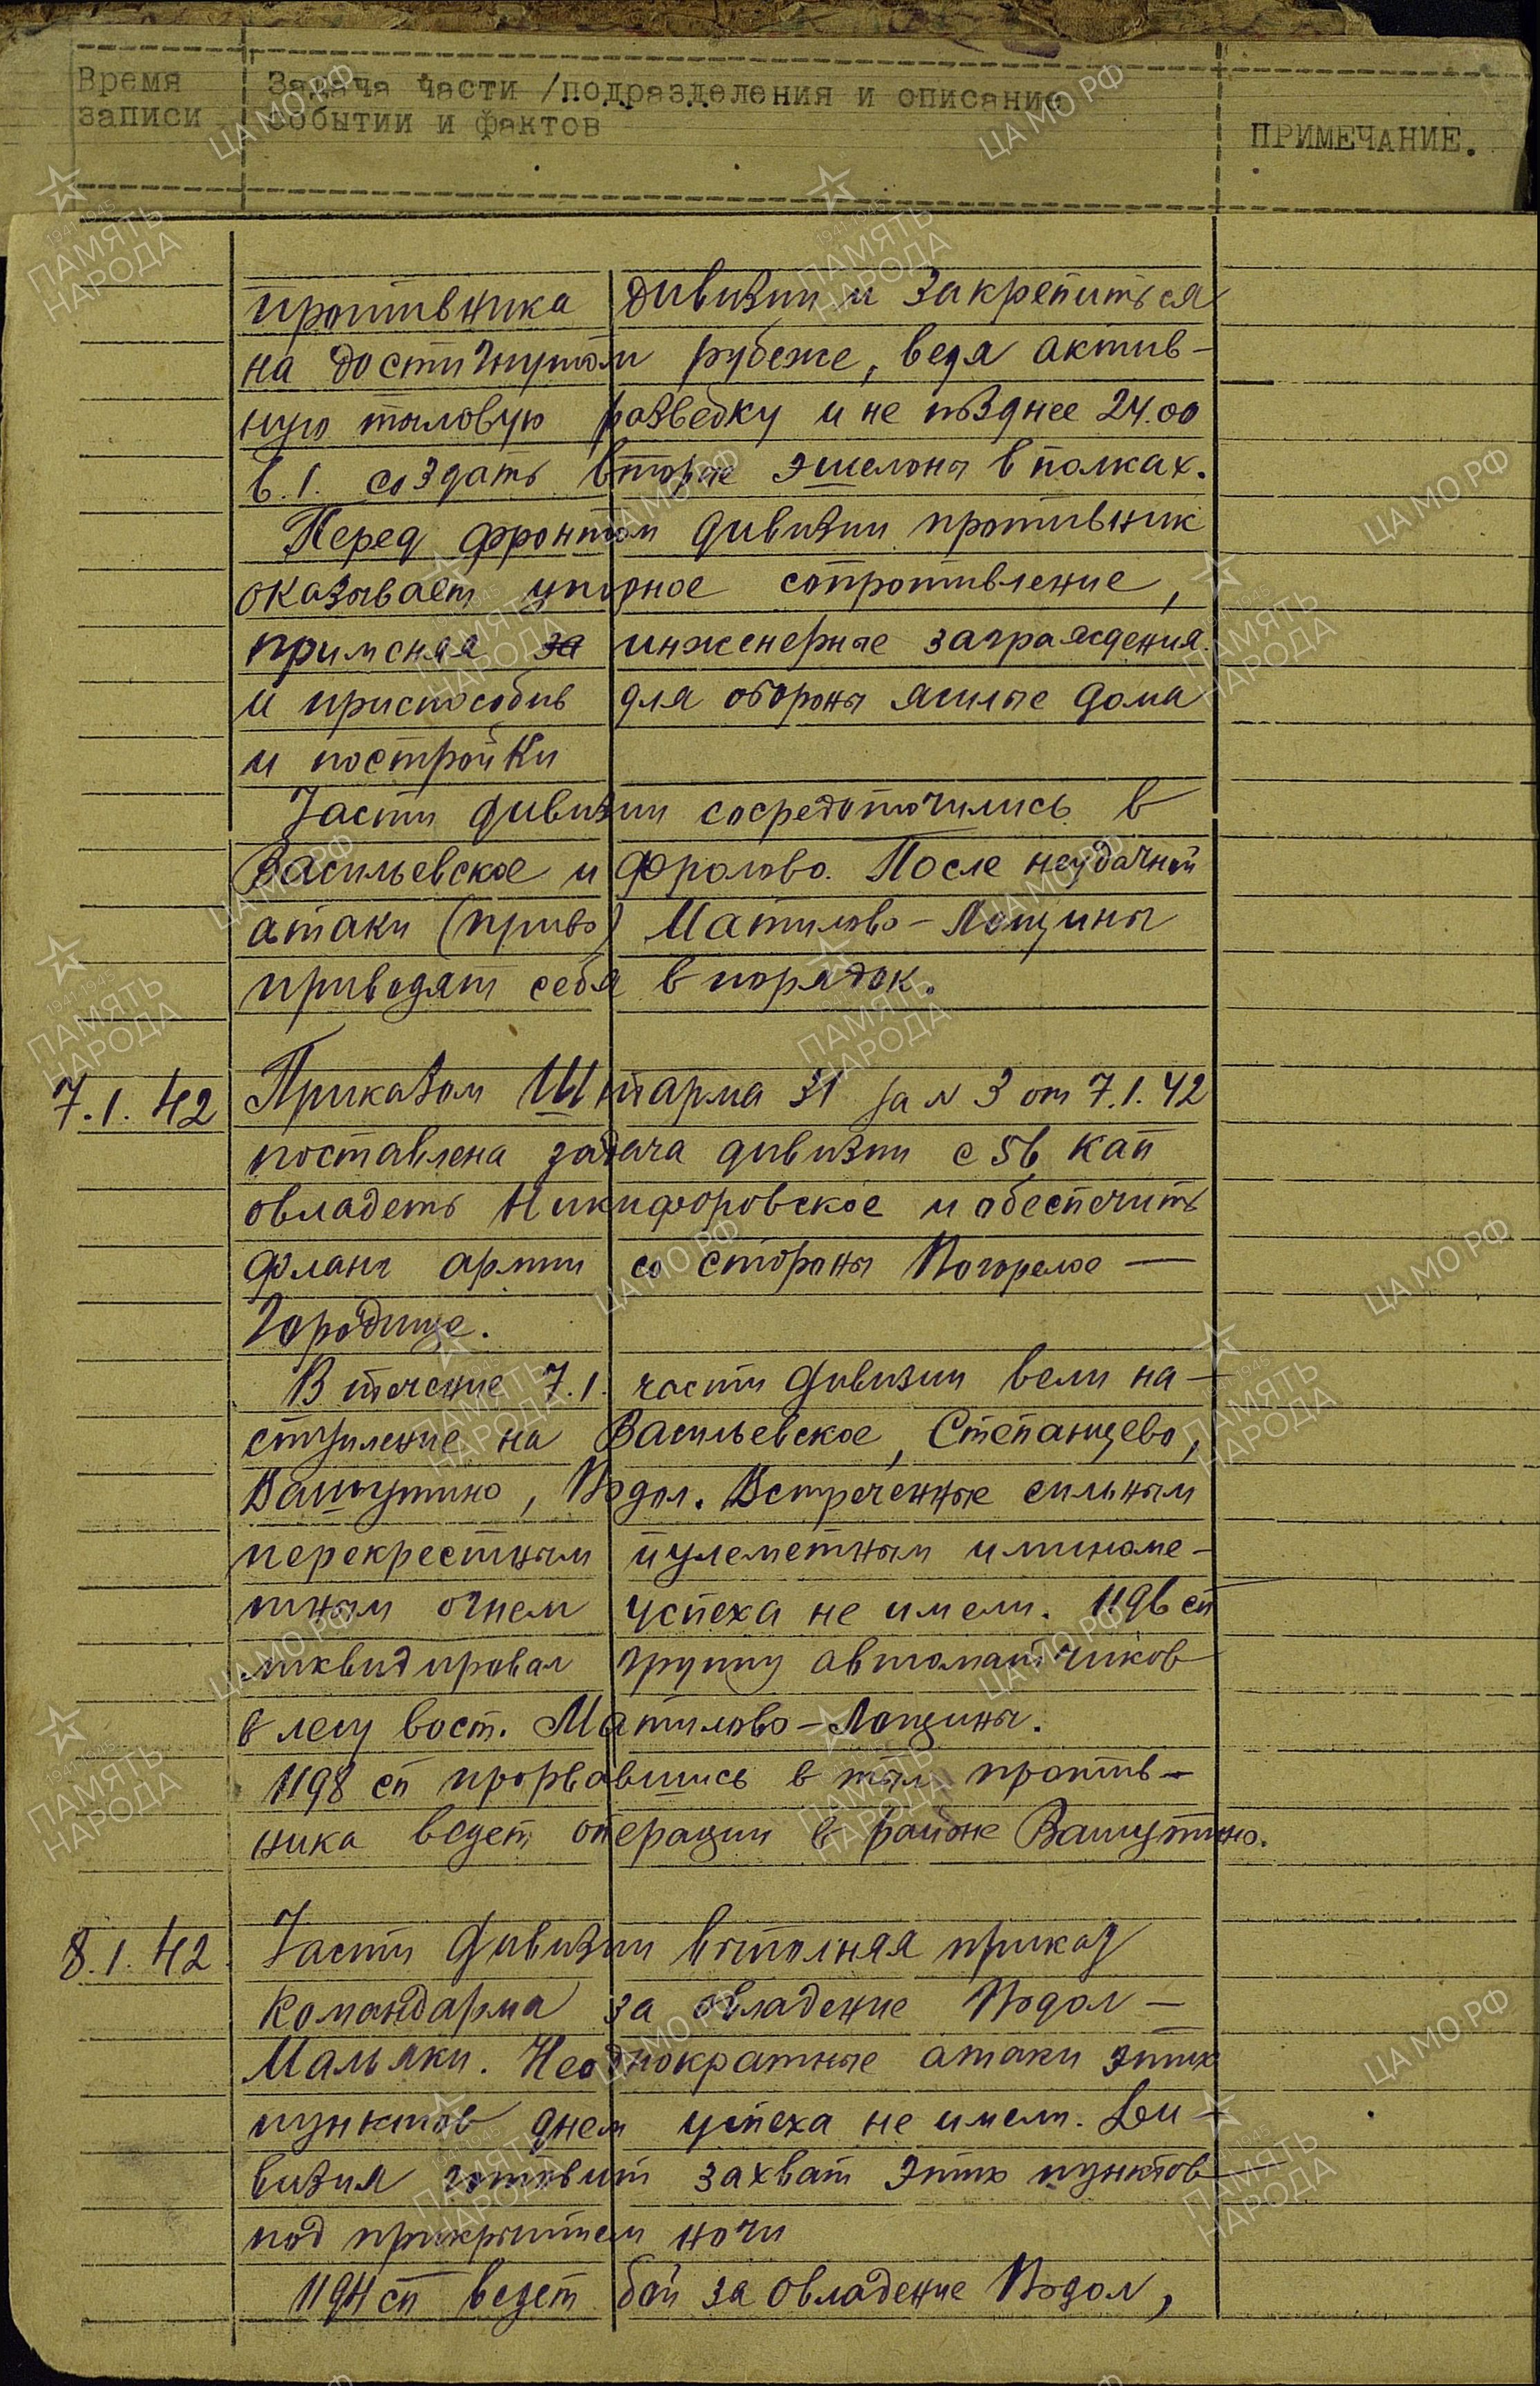 Время записи
Задача части /подразделения и описание
событий и фактов
ПРИМЕЧАНИЕ.
противника дивизии и закрепиться
на достигнутом рубеже, ведя актив-
ную тыловую разведку и не позднее 24.00
6.1. создать вторые эшелоны в полках.
Перед фронтом дивизии противник
оказывает упорное сопротивление,
применяя за инженерные заграждения
и приспособив для обороны жилые дома
и постройки
Части дивизии сосредоточились в
Васильевское и Фролово. После неудачной
атаки Матилово - Лощины
приводят себя в порядок.
7.1.42 Приказом Штарма 31 за N 3 от 7.1.42
поставлена задача дивизии с 56 кап
овладеть Никифоровское и обеспечить
фланг армии со стороны Погорелое —
Городище.
В течение 7.1. части дивизии вели на-
ступление на Васильевское, Степанцево,
Вашутино, Подол. Встреченные сильным
перекрестным пулеметным и миноме-
тным огнем успеха не имели. 1196 сп
ликвидировал группу автоматчиков
в лесу вост. Матилово - Лощины.
1198 сп прорвавшись в тыл против-
ника ведет операции в районе Вашутино.
8.1.42. Части дивизии выполняя приказ
командарма за овладение Подол —
Мальяки. Неоднократные атаки этих
пунктов днем успеха не имели. Ди-
визия готовит захват этих пунктов
под прикрытием ночи
1194 сп ведет бой за овладение Подол,
ЦА МО РФ
ПАМЯТЬ НАРОДА
1941-1945